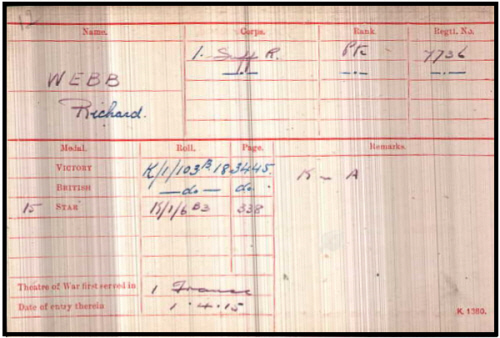 12
Name. Corps. Rank. Regtl. No.
1. Suff R. Pte 7736
WEBB —.— —.— —.—
Richard.
Medal. Roll. Page. Remarks.
VICTORY K/1/103 B 18 3445. K – A
BRITISH —do— do.
15 STAR K/1/6 B3 338
Theatre of War first served in 1 France
Date of entry therein 1.4.15
K. 1380.